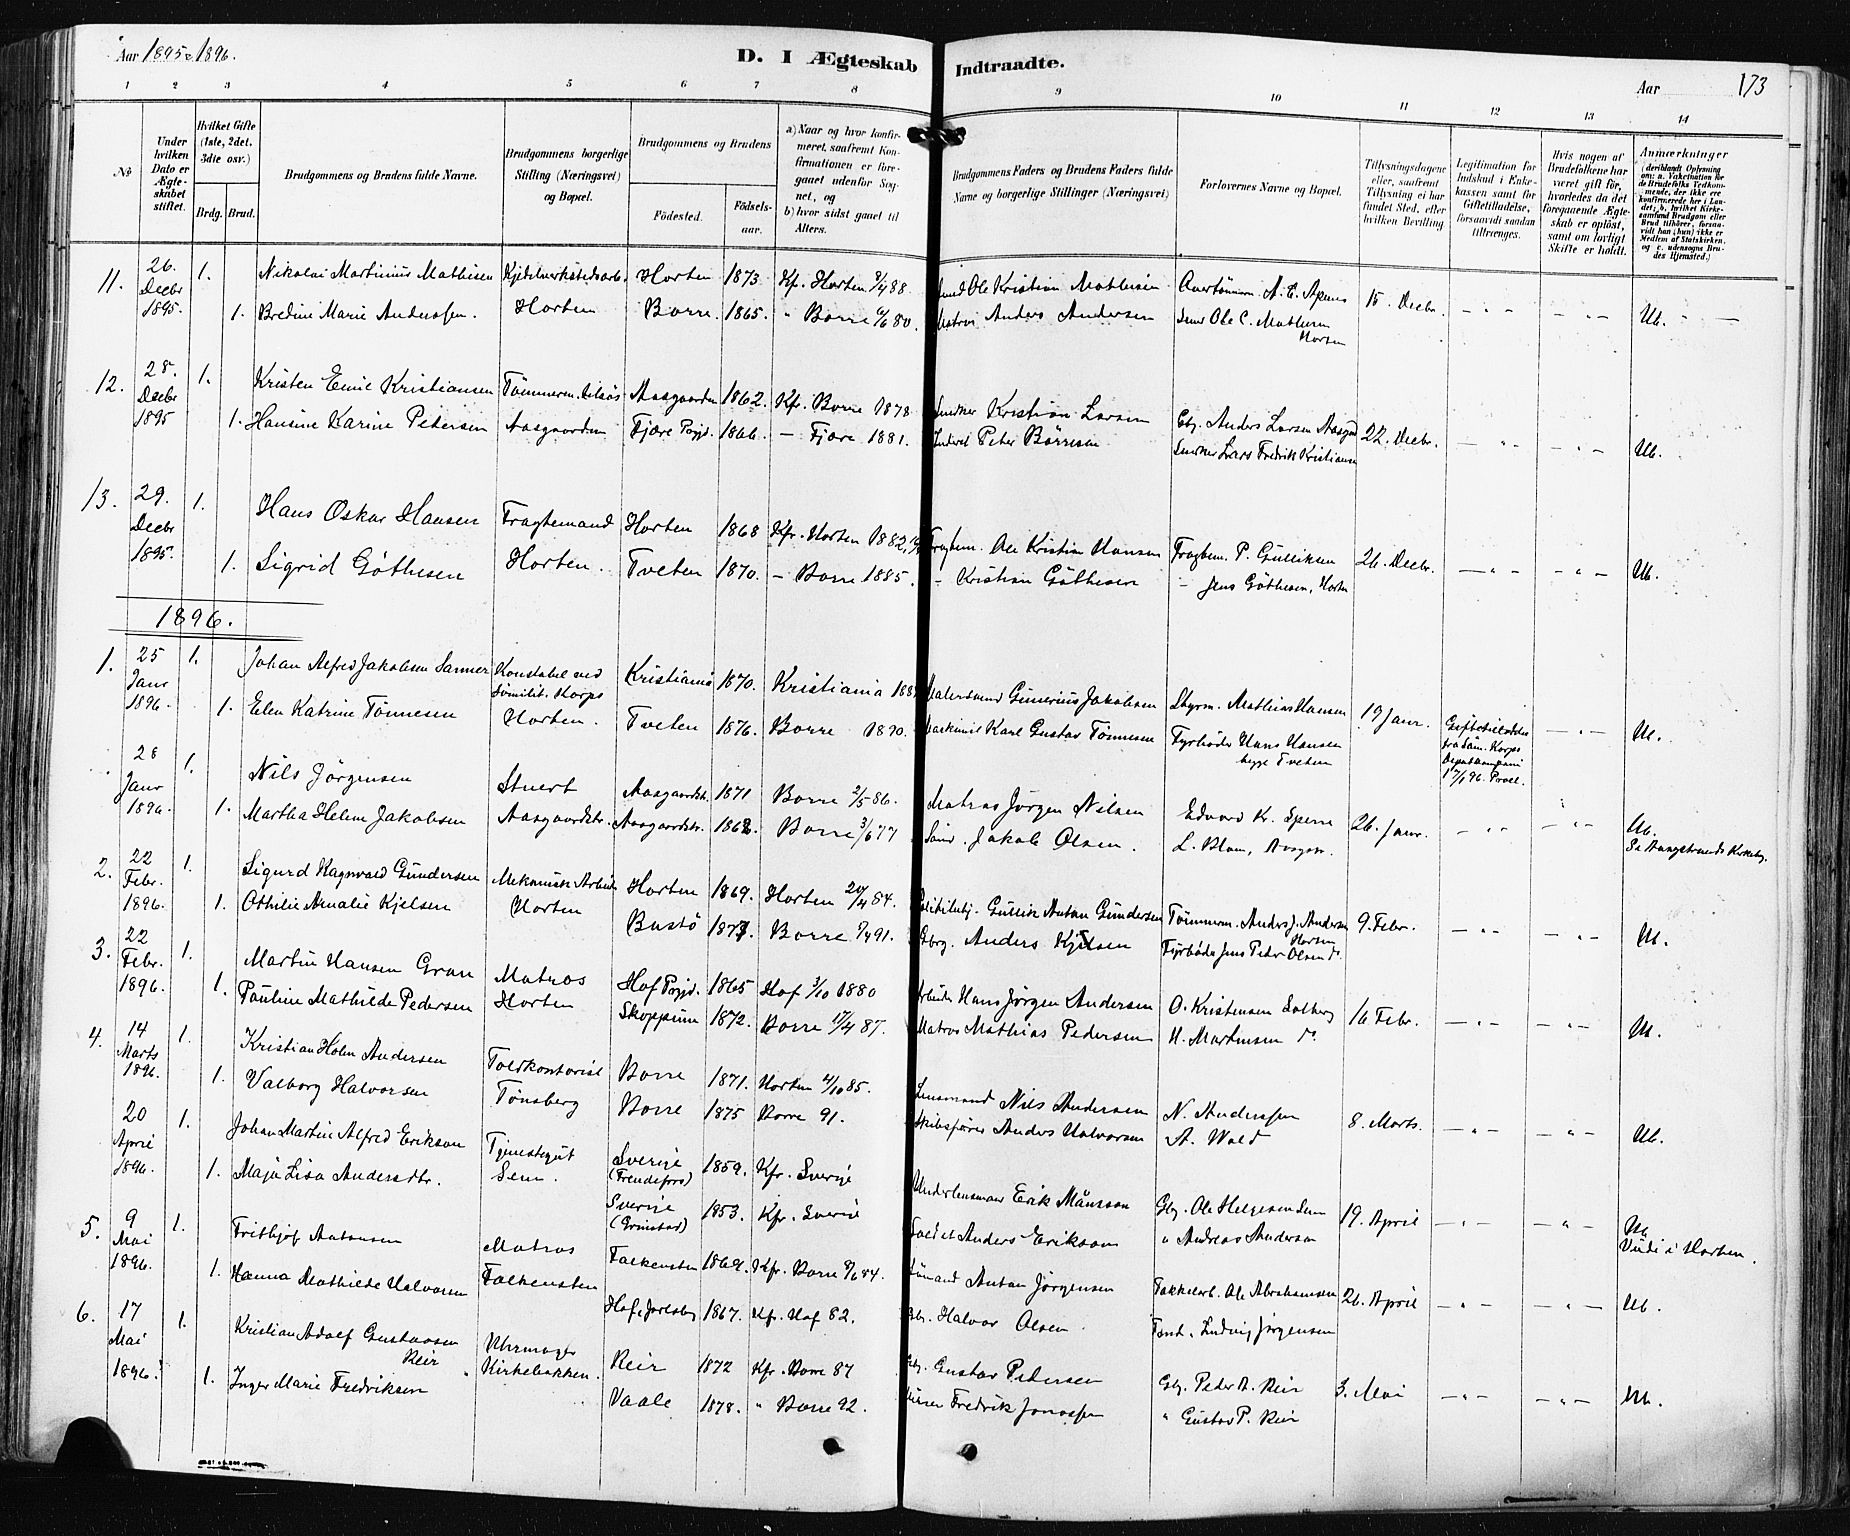 Aar 1895 & 1896.
D. I Ægteskab Indtraadte.
Aar 173
1 2 3 4 5 6 7 8 9 10 11 12 13 14
№
Under hvilken Dato er Ægteskabet stiftet.
Hvilket Gifte (1ste, 2det, 3die osv.)
Brdg. Brud.
Brudgommens og Brudens fulde Navne.
Brudgommens borgerlige Stilling (Næringsvei) og Bopæl.
Brudgommens og Brudens
Fødested.
Fødselsaar.
a) Naar og hvor konfirmeret, saafremt Konfirmationen er foregaaet udenfor Sognet, og
b) hvor sidst gaaet til Alters.
Brudgommens Faders og Brudens Faders fulde Navne og borgerlige Stillinger (Næringsvei)
Forlovernes Navne og Bopæl.
Tillysningsdagene eller, saafremt Tillysning ei har fundet Sted, efter hvilken Bevilling
Legitimation for Indskud i Enkekassen samt for Giftetilladelse, forsaavidt saadan tiltrænges.
Hvis nogen af Brudefolkene har været gift før, hvorledes da det foregaaende Ægteskab er opløst, samt om lovligt Skifte er holdt.
Anmærkninger
(deriblandt Oplysning om: a. Vakcination for de Brudefolks Vedkommende, der ikke ere konfirmerede her i Landet; b. hvilket Kirkesamfund Brudgom eller Brud tilhører, forsaavidt han (hun) ikke er Medlem af Statskirken, og c. udensogns Brudes Hjemsted.)
11. 26. Decbr 1895. 1. Nikolai Martinius Mathisen Kjedelverkstedsarb. Horten 1873 Kf. Horten 8/4 88 Ole Kristian Mathisen A. E. Apenes 15. Decbr. — „ — — „ — Ub.
1. Bredine Marie Anderssen. Horten Borre 1865. „ Borre 6/6 80. Matros Anders Andersen Ole C. Mathisen Horten
12. 28. Decbr 1895 1. Kristen Emil Kristiansen Tømmerm. Aasgaarden 1862. Kf. Borre 1878 Snedker Kristian Larsen Gbg. Anders Larsen Aasgrd 22. Decbr. — „ — — „ — Ub.
1. Hansine Karine Petersen Aasgaarden Fjære Prgjd. 1866. — Fjære 1881. Peter Børresen Snedker Lars Fredrik Kristiansen
13. 29. Decbr 1895. 1. Hans Oskar Hansen Fragtemand Horten 1868 Kf. Horten 1882 Fragtem. Ole Kristian Hansen Fragtem. P. Gulliksen 26. Decbr. — „ — — „ — Ub.
1. Sigrid Gøthesen Horten. Tveten 1870. — Borre 1885. – Kristian Gøthesen – Jens Gøthesen, Horten
1896.
1. 25 Janr 1896. 1. Johan Alfred Jakobsen Sanner Konstabel ved Sømilit. Korps Kristiania 1870. Kristiania Gunerius Jakobsen Styrm. Mathias Hansen 19 Janr. Giftetilladelse fra Søm. Korps Depotkompani 17/1 96. Prod. — „ — Ub.
1. Elen Katrine Tønnesen Horten. Tveten 1876. Borre 1890. Karl Gustav Tønnesen Fyrbøder Hans Hansen begge Tveten
28 Janr 1896. 1. Nils Jørgensen Stuert Aasgaardstr. 1871 Borre 2/5 86. Matros Jørgen Nilsen Edvard Kr. Sperre 26. Janr. — „ — — „ — Ub.
1. Martha Helene Jakobsen Aasgaardstr. Aasgaardstr. 1862. Borre 3/6 77 Jakob Olsen. L. Blom, Aasgstr. Se Aasgstrands Kirkebg.
2. 22 Febr. 1896. 1. Sigurd Ragnvald Gundersen Mekanisk Arbeid. Horten 1869. Horten 20/4 84. Gullik Antan Gundersen Tømmerm. Anders J. Andersen Horten 9. Febr. — „ — — „ — Ub.
1. Othilie Amalie Kjelsen Horten Bastø 1877. Borre 5/4 91. Gbrg. Anders Kjelsen Fyrbøder Jens Peter Olsen do.
3. 22 Febr. 1896. 1. Martin Hansen Gran Matros Hof Prgjd. 1865 Hof 3/10 1880 Arbeider Hans Jørgen Andersen O. Kristensen Solberg 16 Febr. — „ — — „ — Ub.
1. Pauline Mathilde Pedersen Horten Skoppum 1872. Borre 17/4 87. Matros Mathias Pedersen H. Martinsen do.
4. 14 Marts 1896. 1. Kristian Holm Andersen Toldkontorist Borre 1871. Horten 4/10 85. Lensmand Nils Andersen N. Anderssen 8. Marts. — „ — — „ — Ub.
1. Valborg Halvorsen Tønsberg Borre 1875 Borre 91. Skibsfører Anders Halvorsen A. Wald
20 April 1896. 1. Johan Martin Alfred Erikson Tjenestegut Sverige (Frendefors) 1859. Kf. Sverige Underlensmaer Erik Månsson Gbg. Ole Helgesen Sem 19. April — „ — — „ — Ub.
1. Maja Lisa Andersdtr. Sem. Sverige (Grinstad) 1853. Kf. Sverige Soldat Anders Erikson „ Andreas Andersen Viede i Horten.
5. 9 Mai 1896. 1. Frithjof Antonsen Matros Falkensten 1869. Kf. Borre 8/6 84. Sømand Antan Jørgensen Takkelarb. Ole Abrahamsen 26. April — „ — — „ — Ub.
1. Hanna Mathilde Halvorsen Falkensten Hof i Jarlsberg 1867. Kf. Hof 82. Gbr. Halvor Olsen. Tønd. Ludvig Jørgensen
6. 17 Mai 1896. 1. Kristian Adolf Gustavsen Reir Uhrmager Reir 1872 Kf. Borre 87 Gbg. Gustav Petersen Gbg. Peter A. Reir 3. Mai — „ — — „ — Ub.
1. Inger Marie Fredriksen Kirkebakken. Vaale 1878. „ Borre 92. Fredrik Jonassen „ Gustav P. Reir